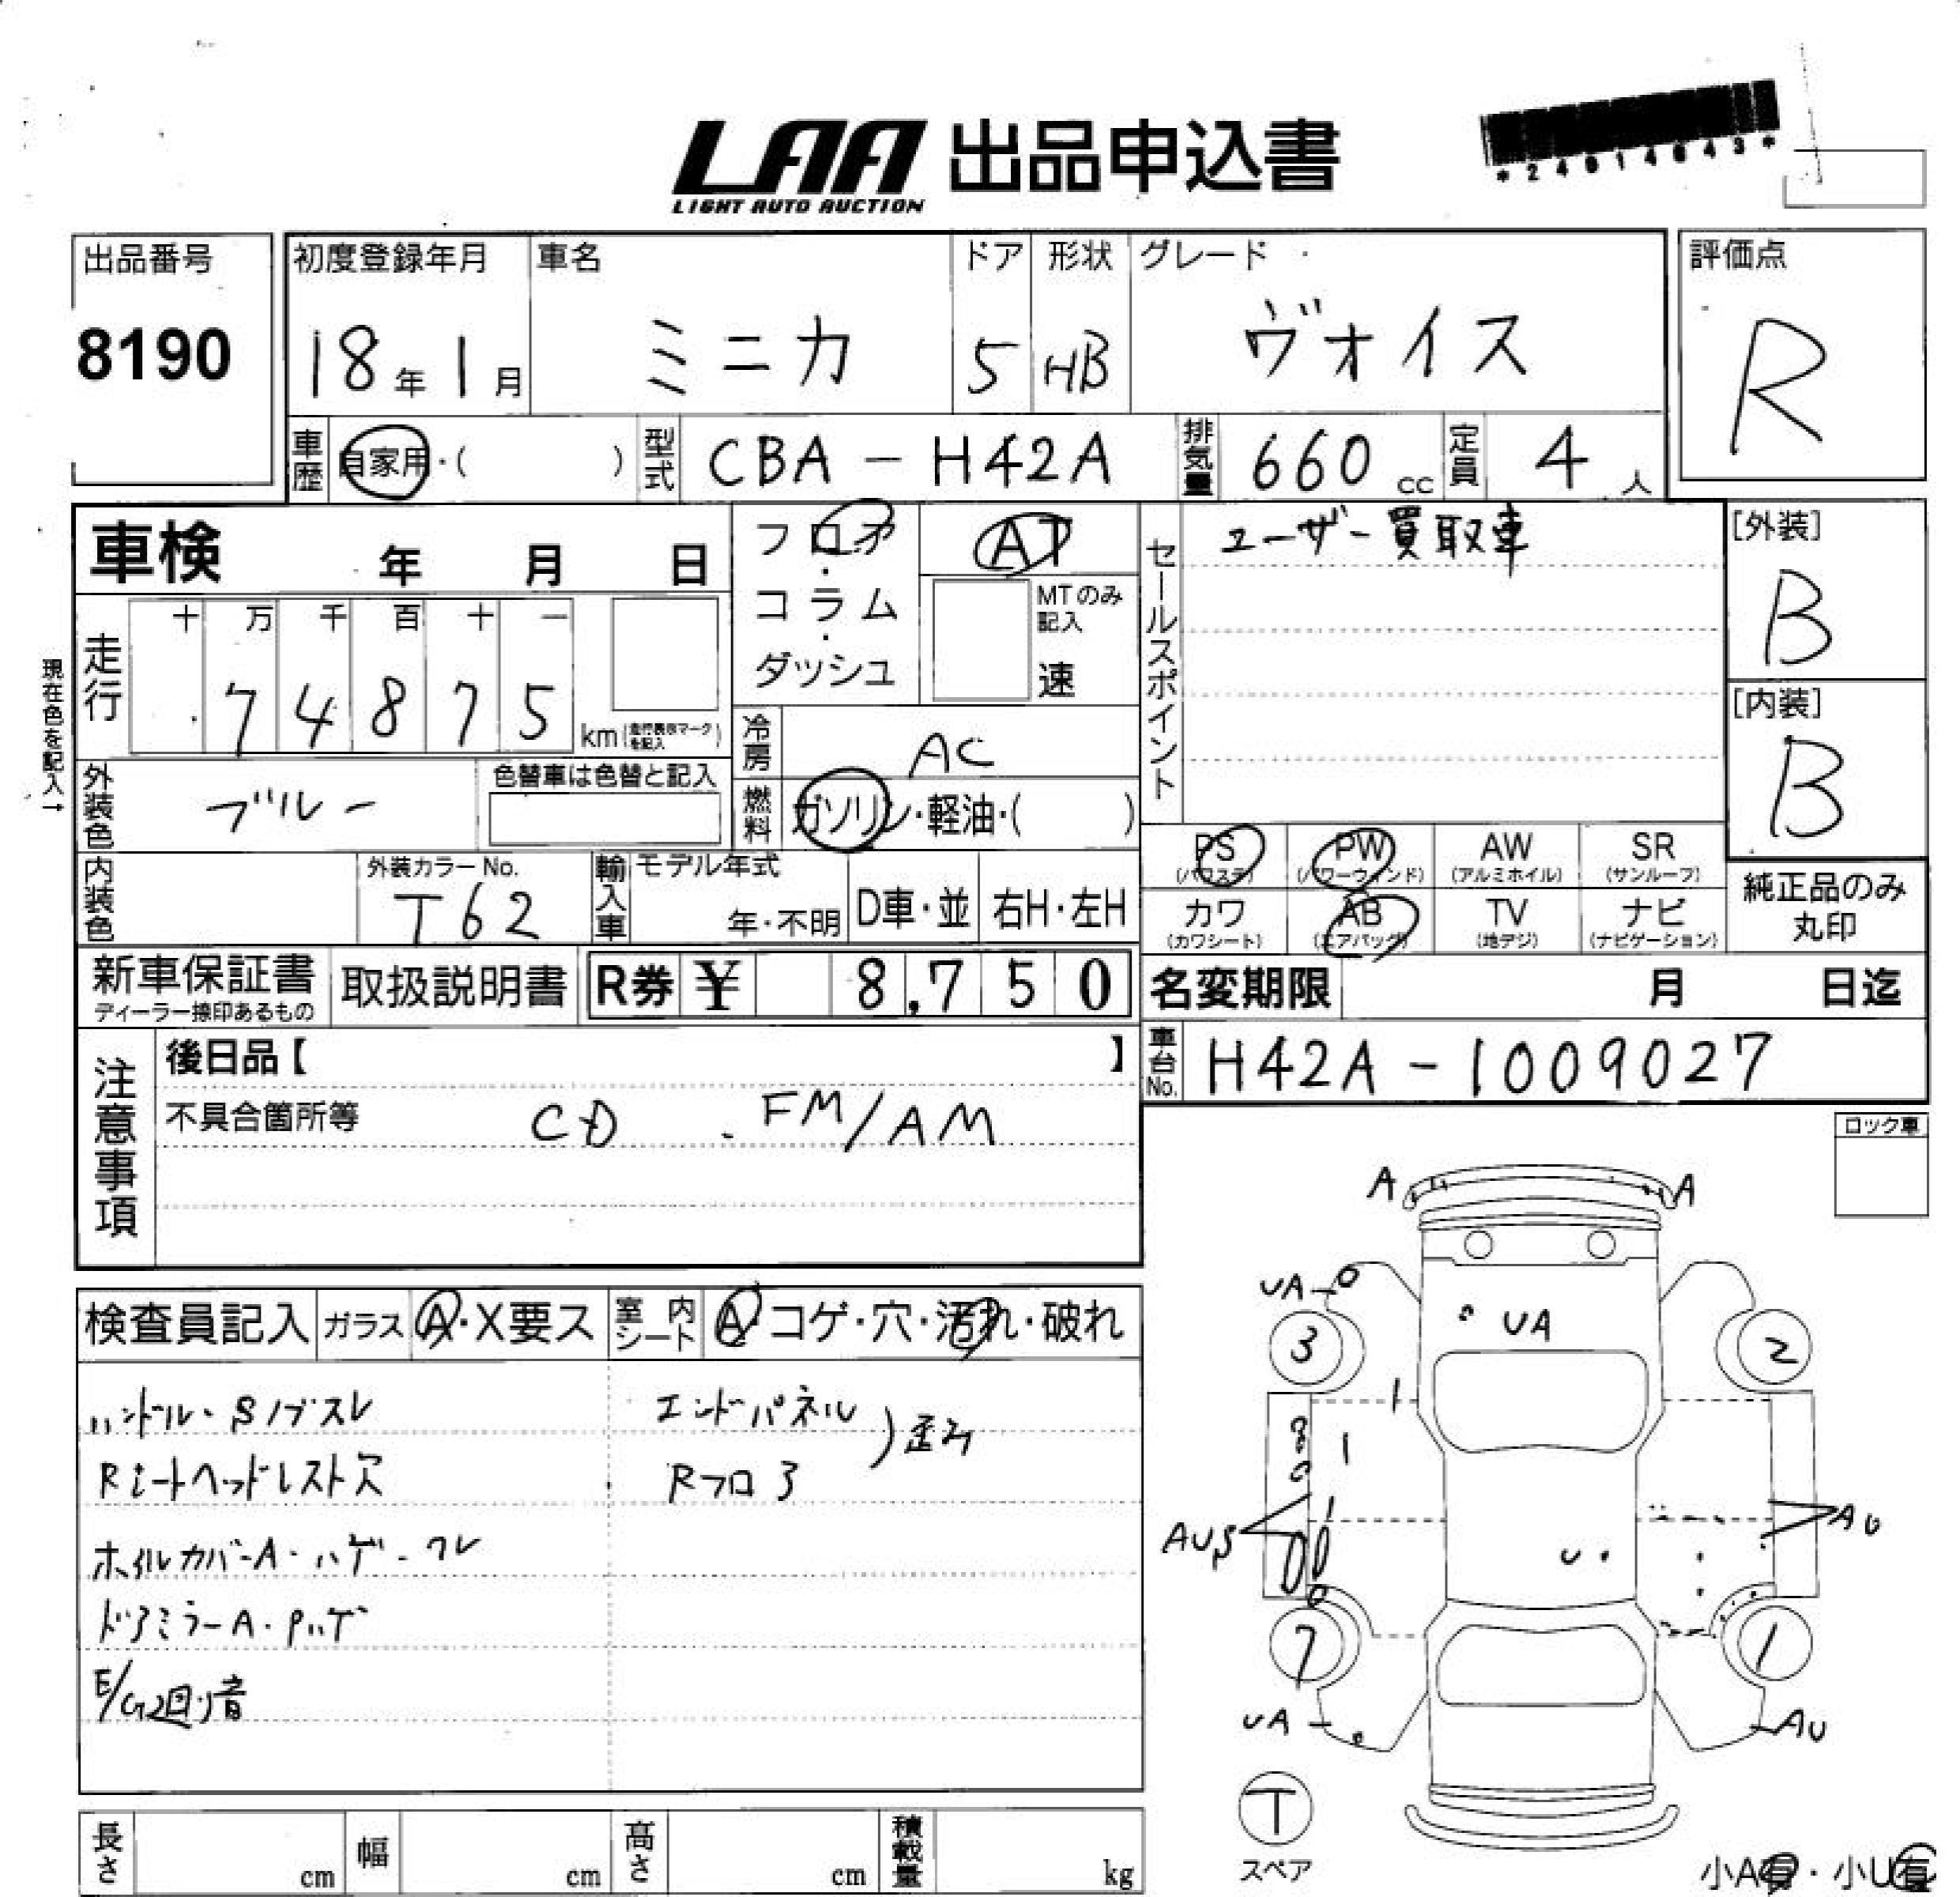 LAA 出品申込書
LIGHT AUTO AUCTION
*24014643*
出品番号
8190
初度登録年月
18年1月
車名
ミニカ
ドア
5
形状
HB
グレード
ヴォイス
評価点
R
車歴
自家用・( )
型式
CBA-H42A
排気量
660cc
定員
4人
車検 年 月 日
フロア・コラム・ダッシュ
AT
MTのみ記入
速
セールスポイント
ユーザー買取車
[外装]
B
[内装]
B
現在色を記入→
走行
十万千百十一
74875
km(走行表示マークを記入)
冷房
AC
燃料
ガソリン・軽油・( )
外装色
ブルー
色替車は色替と記入
内装色
外装カラーNo.
T62
輸入車
モデル年式
年・不明
D車・並
右H・左H
PS
(パワステ)
PW
(パワーウインド)
AW
(アルミホイル)
SR
(サンルーフ)
カワ
(カワシート)
AB
(エアバッグ)
TV
(地デジ)
ナビ
(ナビゲーション)
純正品のみ
丸印
新車保証書
ディーラー捺印あるもの
取扱説明書
R券 ¥ 8,750
名変期限 月 日迄
車台No.
H42A-1009027
注意事項
後日品【 】
不具合箇所等
CD . FM/AM
ロック車
検査員記入
ガラス
A・X要ス
室内シート
A・コゲ・穴・汚れ・破れ
ハンドル・Sノブスレ
Rシートヘッドレスト欠
ホイルカバーA・ハゲ・ワレ
ドアミラーA・Pハゲ
E/G廻り音
エンドパネル
Rフロア
)歪み
A
A
UA
UA
3
2
AUS
AU
U
7
1
UA
AU
T
スペア
小A有・小U有
長さ cm
幅 cm
高さ cm
積載量 kg